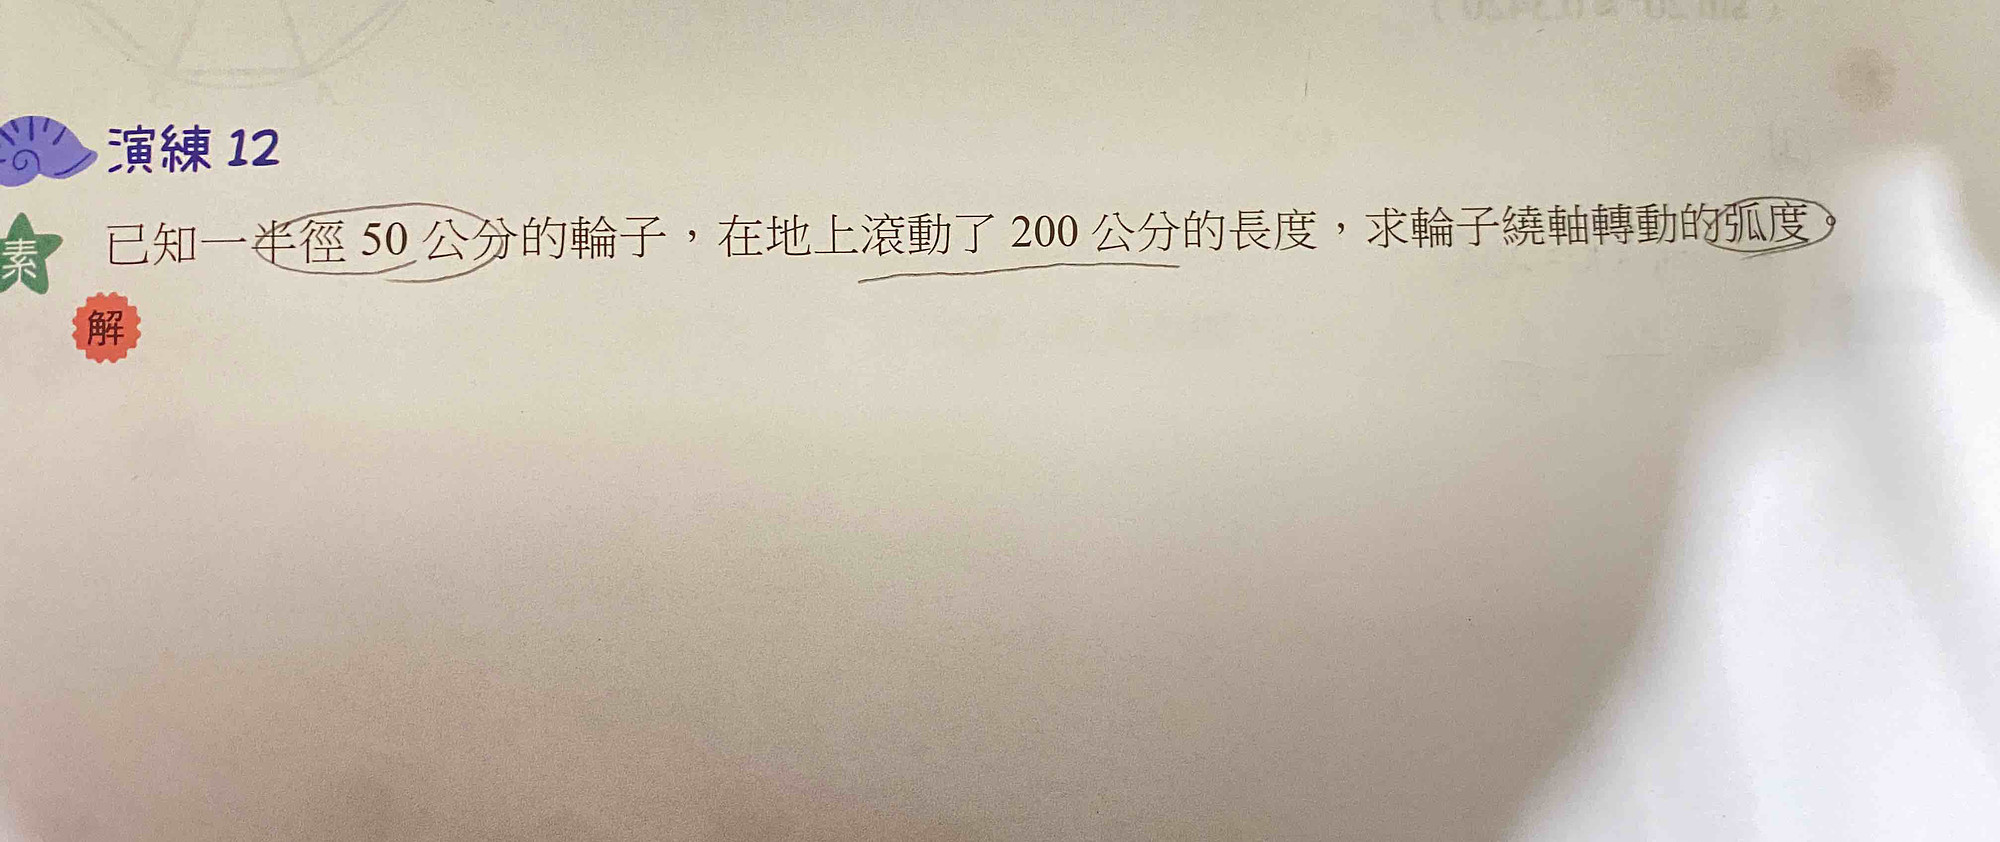 演練 12
素 已知一半徑 50 公分的輪子，在地上滾動了 200 公分的長度，求輪子繞軸轉動的弧度。
解